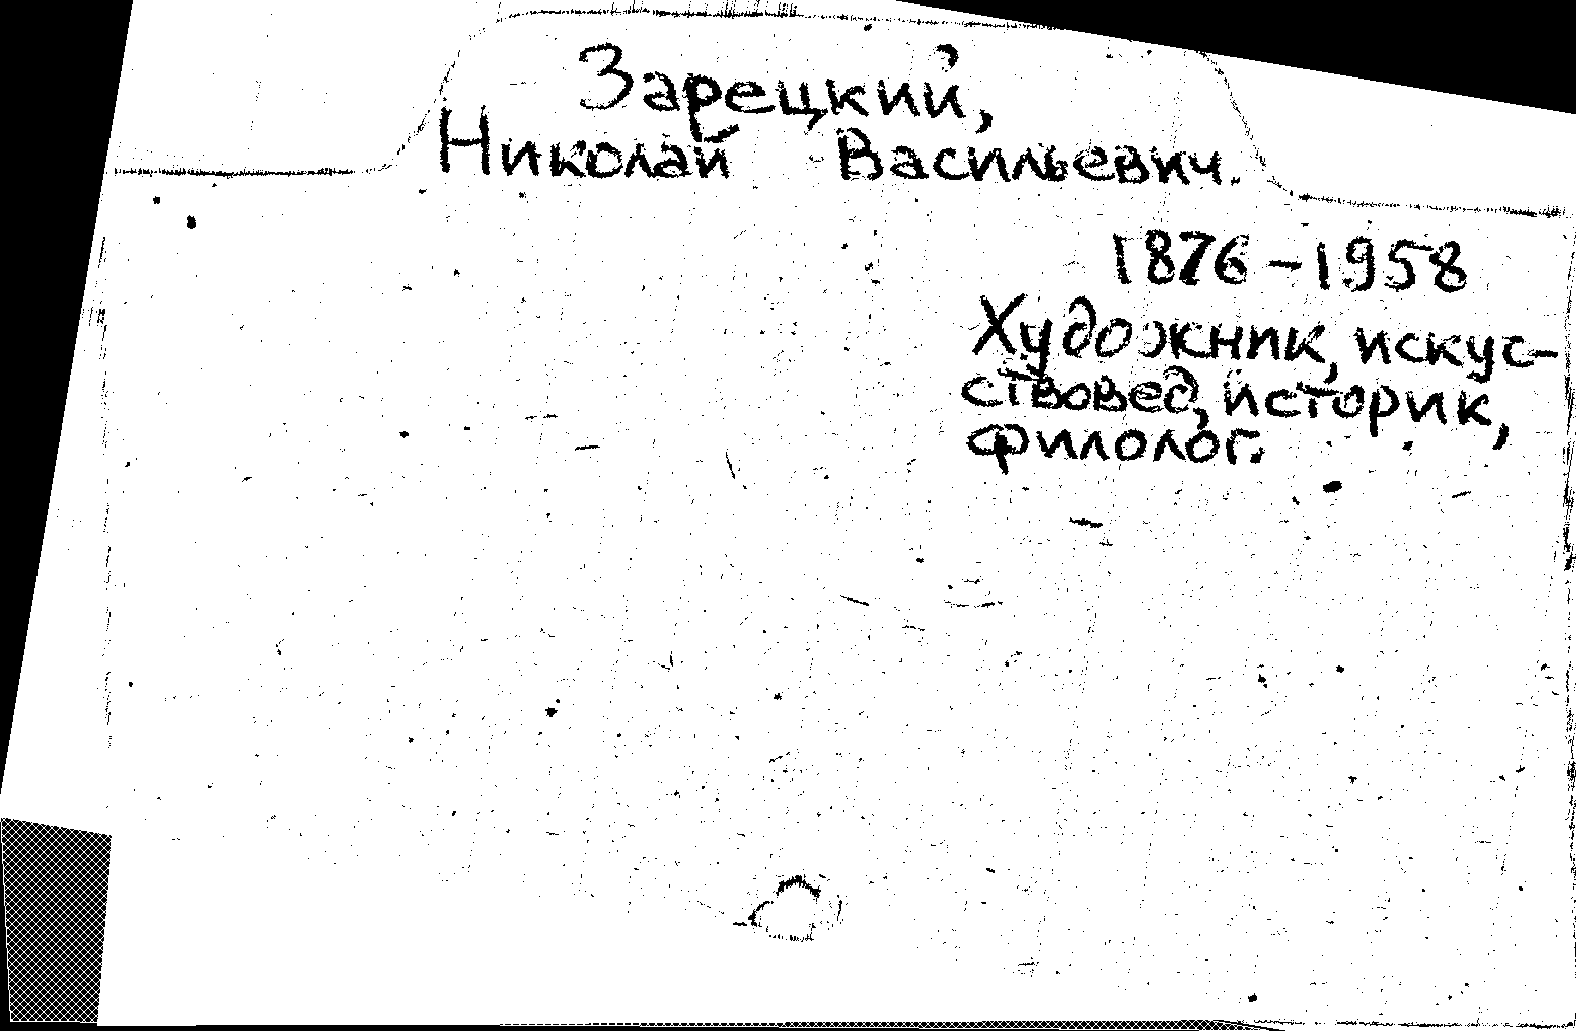 Зарецкий,
Николай Васильевич.
1876-1958
Художник, искус-
ствовед, историк,
филолог.